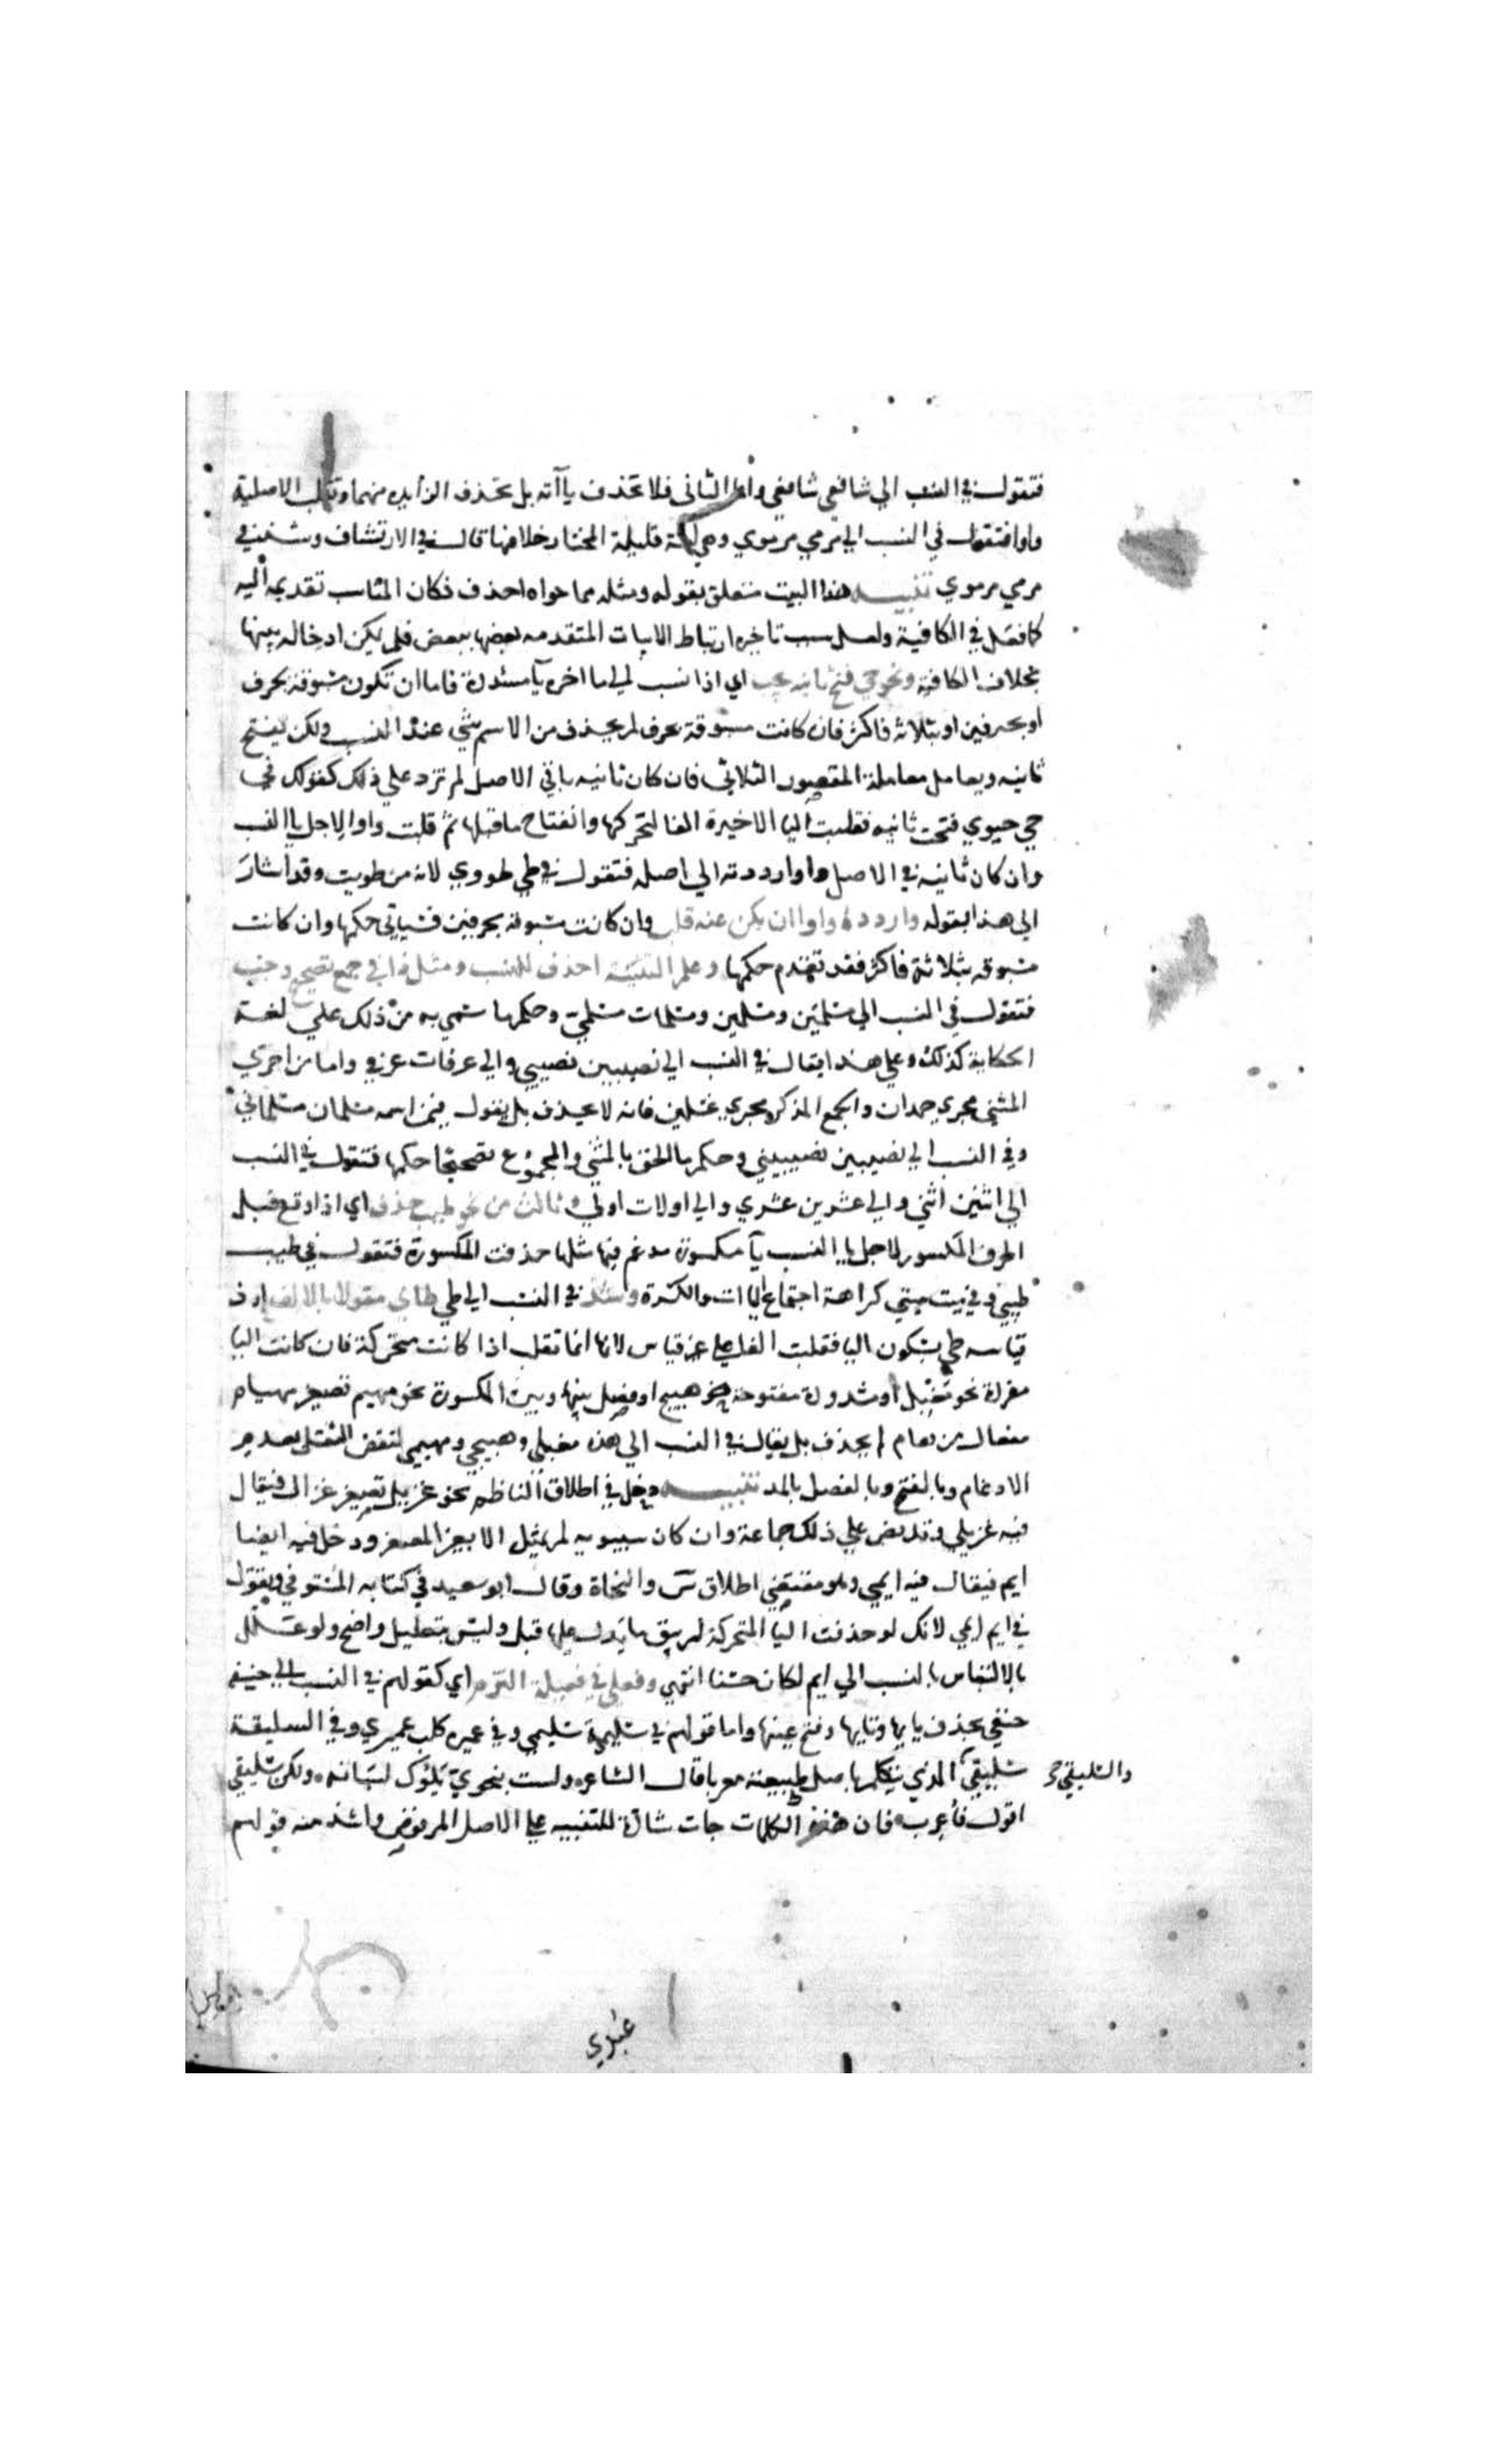 فتقول في النسب الي شافعي شافعي واما الثاني فلا تحذف ياآته بل تحذف الزايده منهما وتقلب الاصلية
واوا فتقول في النسب الي مرمي مرموي وهي لغة قليلة المختار خلافها قال في الارتشاف وشذ في
مرمي مرموي تنبيه هذا البيت متعلق بقوله ومثله مما حواه احذف فكان المناسب تقديمه اليه
كما فعل في الكافية ولعل سبب تاخيره ارتباط الابيات المتقدمه بعضها ببعض فلم يكن ادخاله بينها
بخلاف الكافية ونحو حي فتح ثانيه يجب اي اذا نسب الي ما اخره يآ مشددة فاما ان تكون مسبوقة بحرف
او بحرفين او بثلاثة فاكثر فان كانت مسبوقة بحرف لم يحذف من الاسم شي عند النسب ولكن يفتح
ثانيه ويعامل معاملة المقصور الثلاثي فان كان ثانيه يا في الاصل لم تزد علي ذلك كقولك في
حي حيوي فتحت ثانيه فقلبت اليا الاخيرة الفا لتحركها وانفتاح ما قبلها ثم قلبت واوا لاجل يا النسب
وان كان ثانيه في الاصل واوا رددته الي اصله فتقول في طي طووي لانه من طويت وقد اشار
الي هذا بقوله واردده واوا ان يكن عنه قلب وان كانت مسبوقة بحرفين فسياتي حكمها وان كانت
مسبوقه بثلاثة فاكثر فقد تقدم حكمها وعلم التثنية احذف للنسب ومثل ذا في جمع تصحيح وجب
فتقول في النسب الي مسلمين ومسلمين ومسلمات مسلمي وحكم ما سمي به من ذلك علي لغة
الحكاية كذلك وعلي هذا يقال في النسب الي نصيبين نصيبي والي عرفات عرفي واما من اجري
المثني مجري حمدان والجمع المذكر مجري غسلين فانه لا يحذف بل يقول فيمن اسمه مسلمان مسلماني
وفي النسب الي نصيبين نصيبيني وحكم ما الحق بالمثني والمجموع تصحيحا حكمها فتقول في النسب
الي اثنين اثني والي عشرين عشري والي اولات اولي وثالث من نحو طيب حذف اي اذا وقع قبل
الحرف المكسور لاجل يا النسب يآ مكسورة مدغم فيها مثلها حذفت المكسورة فتقول في طيب
طيبي وفي ميت ميتي كراهة اجتماع الياات والكسرة وشذ في النسب الي طي طاي مقولا بالالف اذ
قياسه طيي بسكون اليا فقلبت الفا علي غير قياس لانها انما تقلب اذا كانت متحركة فان كانت اليا
مفردة نحو مغيل او مشددة مفتوحة نحو هبيخ او فصل بينها وبين المكسورة نحو مهيم تصغير مهيام
مفعال من هام لم يحذف بل يقال في النسب الي هذه مغيلي وهبيخي ومهيمي لنقض الثقل بعدم
الادغام وبالفتح وبالفصل بالمد تنبيه دخل في اطلاق الناظم نحو غزيل تصغير غزال فيقال
فيه غزيلي وقد نص علي ذلك جماعة وان كان سيبويه لم يمثل الا بغير المصغر ودخل فيه ايضا
ايم فيقال فيه ايمي وهو مقتضي اطلاق س والنحاة وقال ابو سعيد في كتابه المستوفي وتقول
في ايم ايمي لانك لو حذفت اليا المتحركة لم يبق ما يدل عليها قيل وليس بتعليل واضح ولو علل
بالالتباس بالنسب الي ايم لكان حسنا انتهي وفعلي في فعيلة التزم اي كقولهم في النسب الي حنيفه
حنفي بحذف يايها وتايها وفتح عينها واما قولهم في سليمة سليمي وفي عميره كلب عميري وفي السليقة
سليقي الذي يتكلم باصل طبيعته معربا قال الشاعر ولست بنحوي يلوك لسانه ولكن سليقي
والسليقي
اقول فاعرب فان هذه الكلمات جات شاذة للتنبيه علي الاصل المرفوض واشذ منه قولهم
عبدي